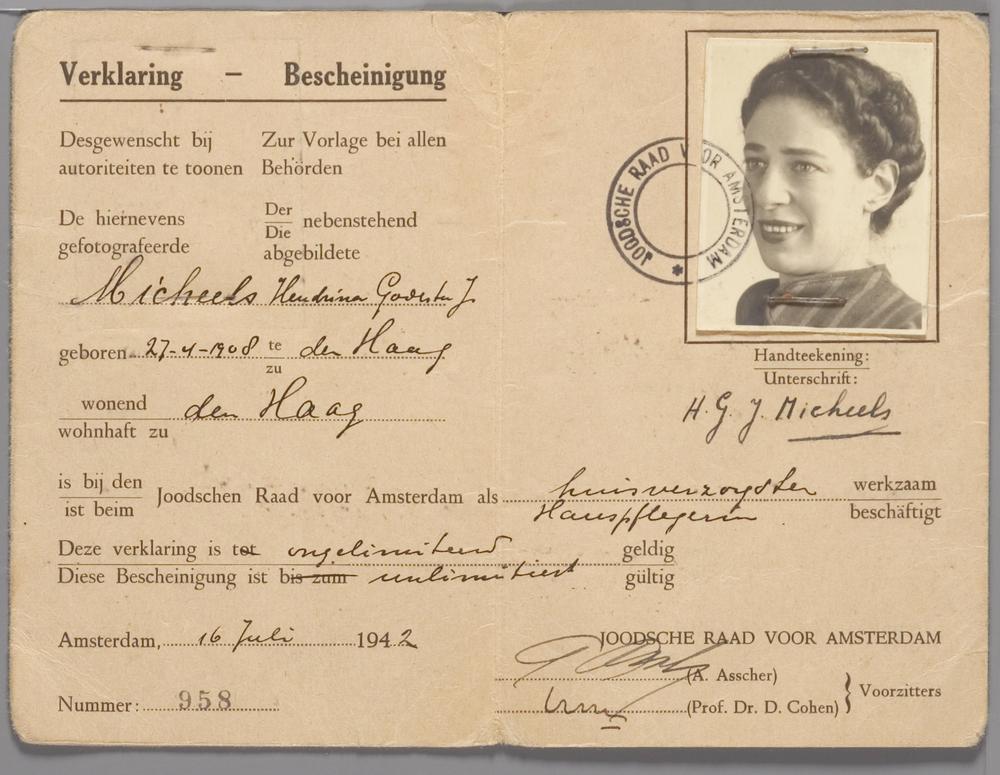 Verklaring – Bescheinigung
Desgewenscht bij autoriteiten te toonen
Zur Vorlage bei allen Behörden
De hiernevens gefotografeerde
Der
Die
nebenstehend abgebildete
Micheels Hendrina Godesta J.
geboren 27-4-1908 te den Haag
zu
wonend den Haag
wohnhaft zu
is bij den
ist beim
Joodschen Raad voor Amsterdam als huisverzorgster werkzaam
Hauspflegerin beschäftigt
Deze verklaring is tot ongelimiteerd geldig
Diese Bescheinigung ist bis zum unlimitiert gültig
Amsterdam, 16 Juli 1942
Nummer: 958
JOODSCHE RAAD VOOR AMSTERDAM
Handteekening:
Unterschrift:
H. G. J. Micheels
JOODSCHE RAAD VOOR AMSTERDAM
(A. Asscher)
(Prof. Dr. D. Cohen)
Voorzitters